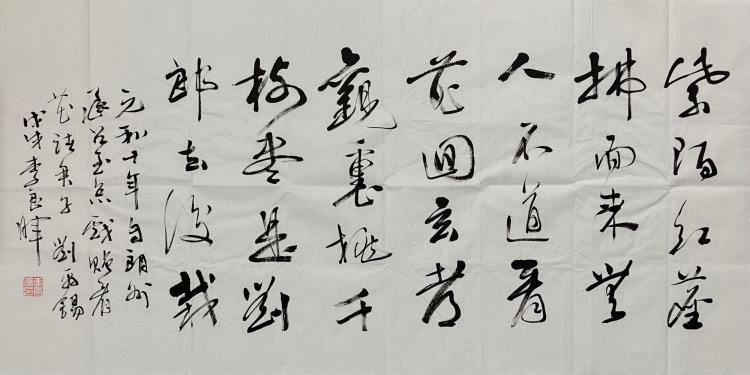 紫陌紅塵
拂面來無
人不道看
花迴玄都
觀裏桃千
樹盡是劉
郎去後栽
元和十年自朗州
承召至京戲贈看
花諸君子 劉禹錫
戊戌李良暉